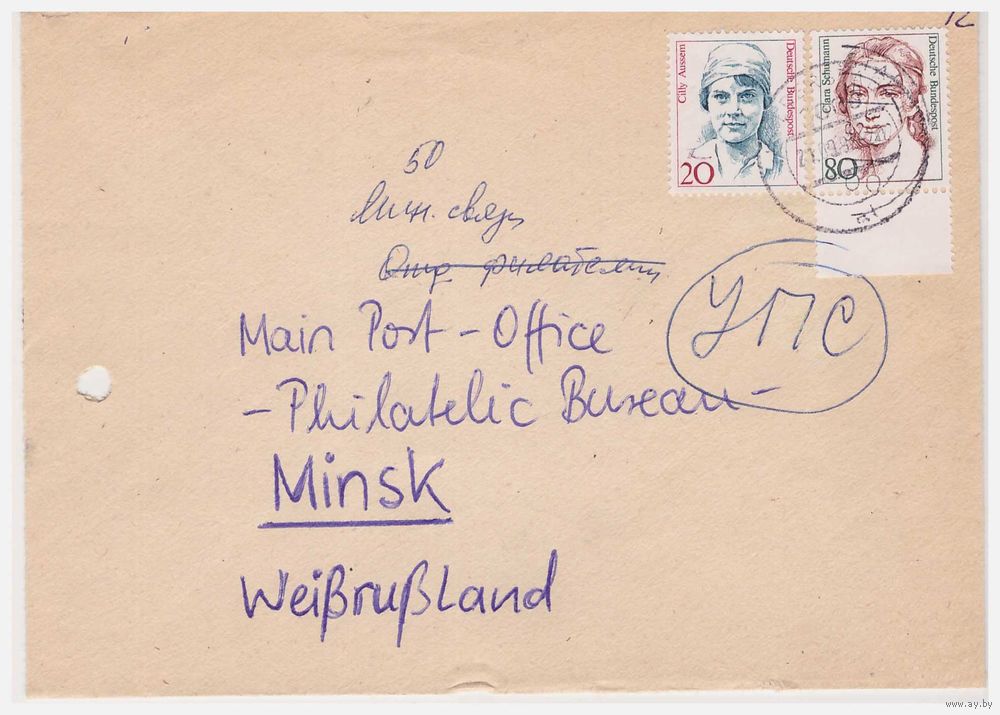 12
Cilly Aussem
Deutsche Bundespost
20
Clara Schumann
Deutsche Bundespost
80
50
связи
Отд филателии
Main Post-Office
УПС
-Philatelic Bureau-
Minsk
Weißrußland
www.ay.by